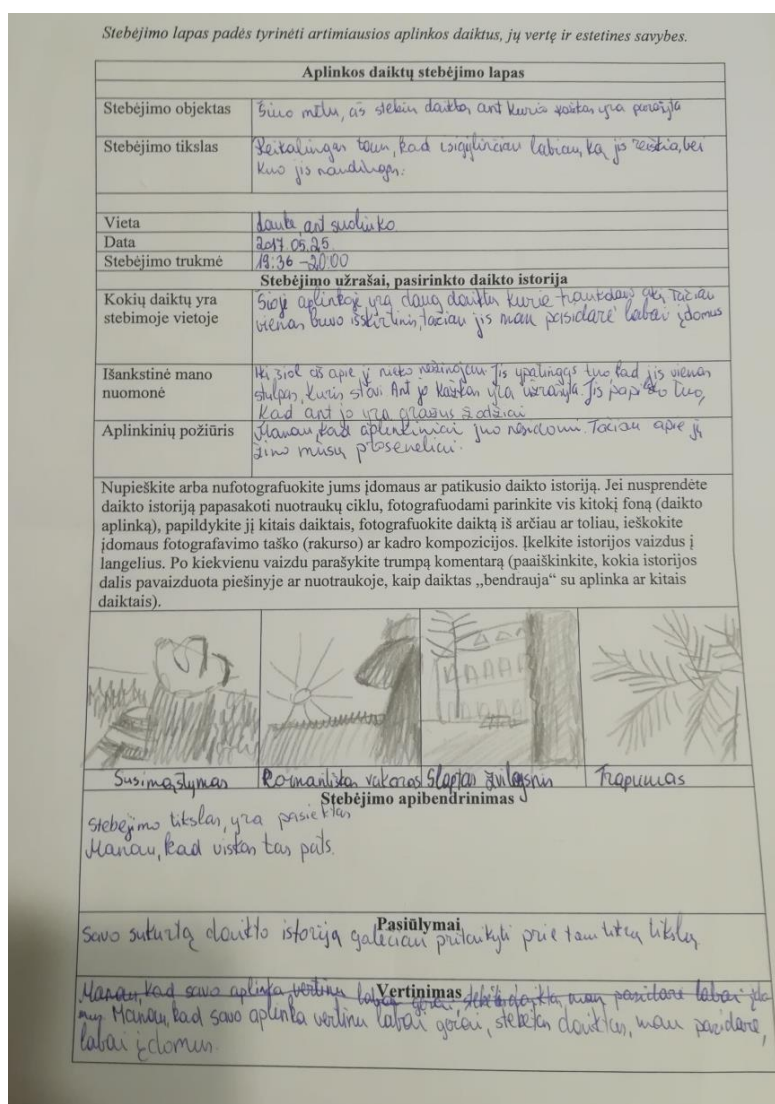 Stebėjimo lapas padės tyrinėti artimiausios aplinkos daiktus, jų vertę ir estetines savybes.
Aplinkos daiktų stebėjimo lapas
Stebėjimo objektas
Šiuo metu, aš stebiu daiktą, ant kurio kažkas yra parašyta
Stebėjimo tikslas
Reikalingas tam, kad įsigylinčiau labiau, ką jis reiškia, bei
kuo jis naudingas.
Vieta
lauke, ant suoliuko
Data
2017.05.25.
Stebėjimo trukmė
19:36 -20:00
Stebėjimo užrašai, pasirinkto daikto istorija
Kokių daiktų yra
stebimoje vietoje
Šioje aplinkoje yra daug daiktų kurie traukdavo akį, Tačiau
vienas buvo išskirtinis, tačiau jis man pasidarė labai įdomus
Išankstinė mano
nuomonė
Iki šiol aš apie jį nieko nežinojau. Jis ypatingas tuo kad jis vienas
stulpas, kuris stovi Ant jo kažkas yra užrašyta. Jis tuo,
kad ant jo yra gražus žodžiai
Aplinkinių požiūris
Manau, kad aplinkiniai juo nesidomi. Tačiau apie jį
žino mūsų proseneliai.
Nupieškite arba nufotografuokite jums įdomaus ar patikusio daikto istoriją. Jei nusprendėte
daikto istoriją papasakoti nuotraukų ciklu, fotografuodami parinkite vis kitokį foną (daikto
aplinką), papildykite jį kitais daiktais, fotografuokite daiktą iš arčiau ar toliau, ieškokite
įdomaus fotografavimo taško (rakurso) ar kadro kompozicijos. Įkelkite istorijos vaizdus į
langelius. Po kiekvienu vaizdu parašykite trumpą komentarą (paaiškinkite, kokia istorijos
dalis pavaizduota piešinyje ar nuotraukoje, kaip daiktas „bendrauja“ su aplinka ar kitais
daiktais).
Susimąstymas
Romantiškas vakaras
Slaptas žvilgsnis
Trapumas
Stebėjimo apibendrinimas
Stebėjimo tikslas, yra pasiektas
Manau, kad viskas tas pats.
Pasiūlymai
Savo sukurtą daikto istoriją galėčiau pritaikyti prie tam tikrų tikslų
Vertinimas
Manau, kad savo aplinka vertinu labai gerai, stebėti daiktą, man pasidarė labai įdo
mus. Manau, kad savo aplinka vertinu labai gerai, stebėtas daiktas, man pasidarė,
labai įdomus.